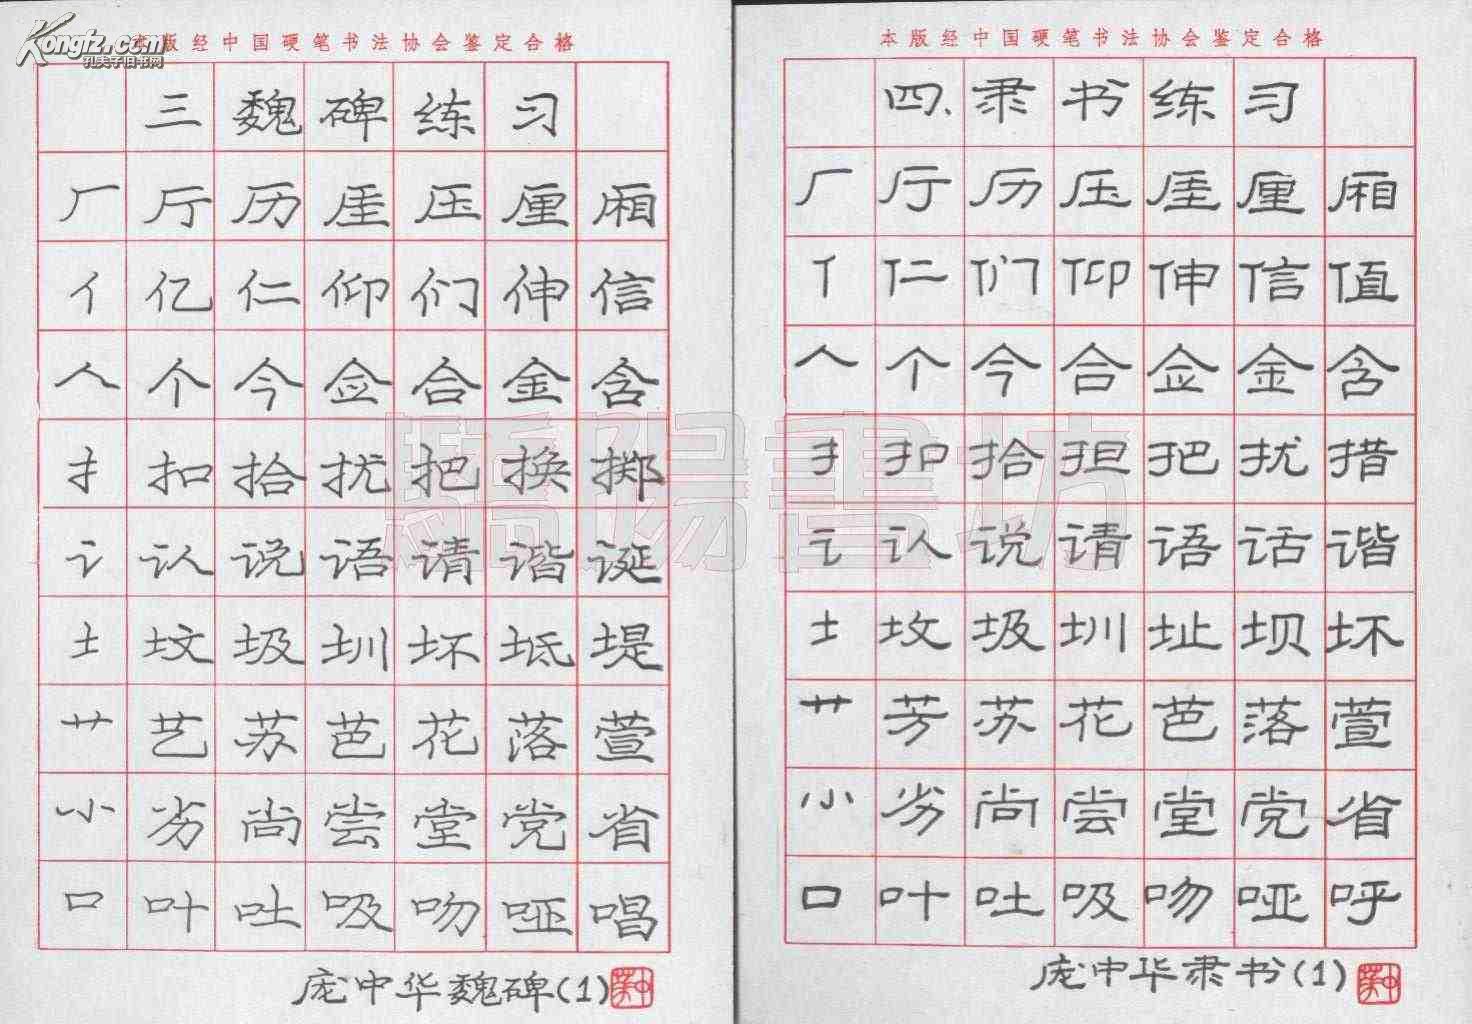 Kongfz.com
孔夫子旧书网
本版经中国硬笔书法协会鉴定合格
三魏碑练习
厂厅历厓压厘厢
亻亿仁仰们伸信
人个今佥合金含
扌扣拾扰把换掷
讠认说语请谐诞
土坟圾圳坏坻堤
艹艺苏芭花落萱
⺌劣尚尝堂党省
口叶吐吸吻哑唱
庞中华魏碑(1)
本版经中国硬笔书法协会鉴定合格
四、隶书练习
厂厅历压厓厘厢
亻仁们仰伸信值
人个今合佥金含
扌扣拾担把扰措
讠认说请语话谐
土坟圾圳址坝坏
艹芳苏花芭落萱
⺌劣尚尝堂党省
口叶吐吸吻哑呼
庞中华隶书(1)
驕陽書坊